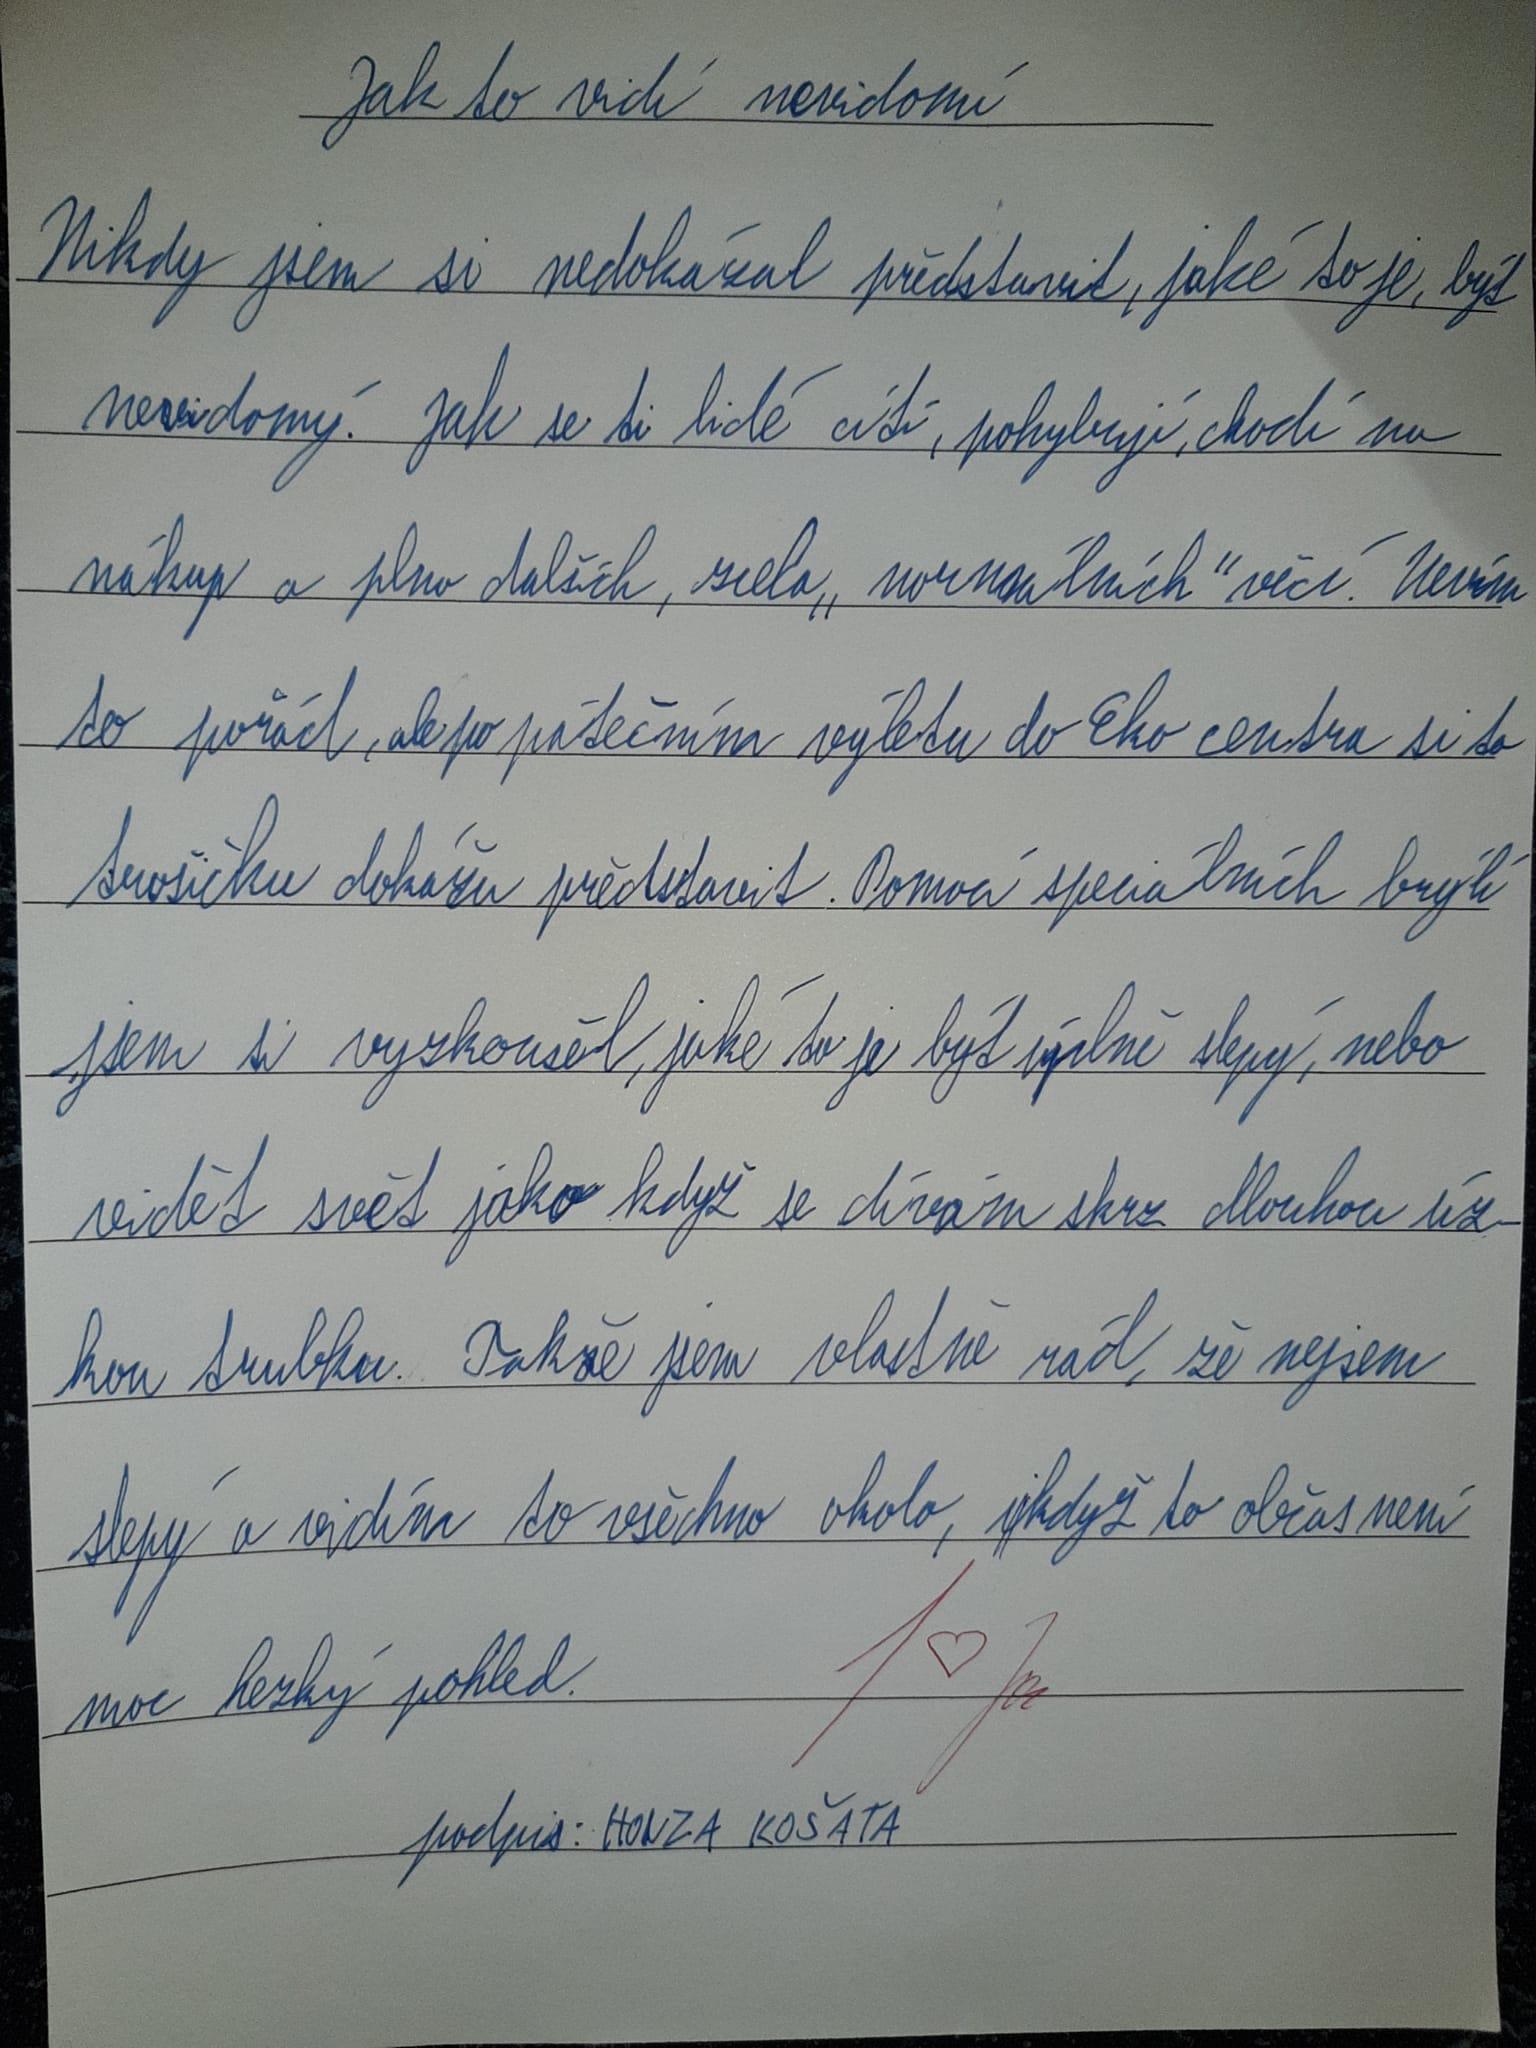 Jak to vidí nevidomí
Nikdy jsem si nedokázal představit, jaké to je, být
nevidomý. Jak se ti lidé cítí, pohybují, chodí na
nákup a plno dalších, zcela „normálních" věcí. Nevím
to pořád, ale po pátečním výletu do Eko centra si to
trošičku dokážu představit. Pomocí speciálních brýlí
jsem si vyzkoušel, jaké to je být úplně slepý, nebo
vidět svět jako když se dívám skrz dlouhou úz-
kou trubku. Takže jsem vlastně rád, že nejsem
slepý a vidím to všechno okolo, ikdyž to občas není
moc hezký pohled.
1 ♡
podpis: HONZA KOŠATA